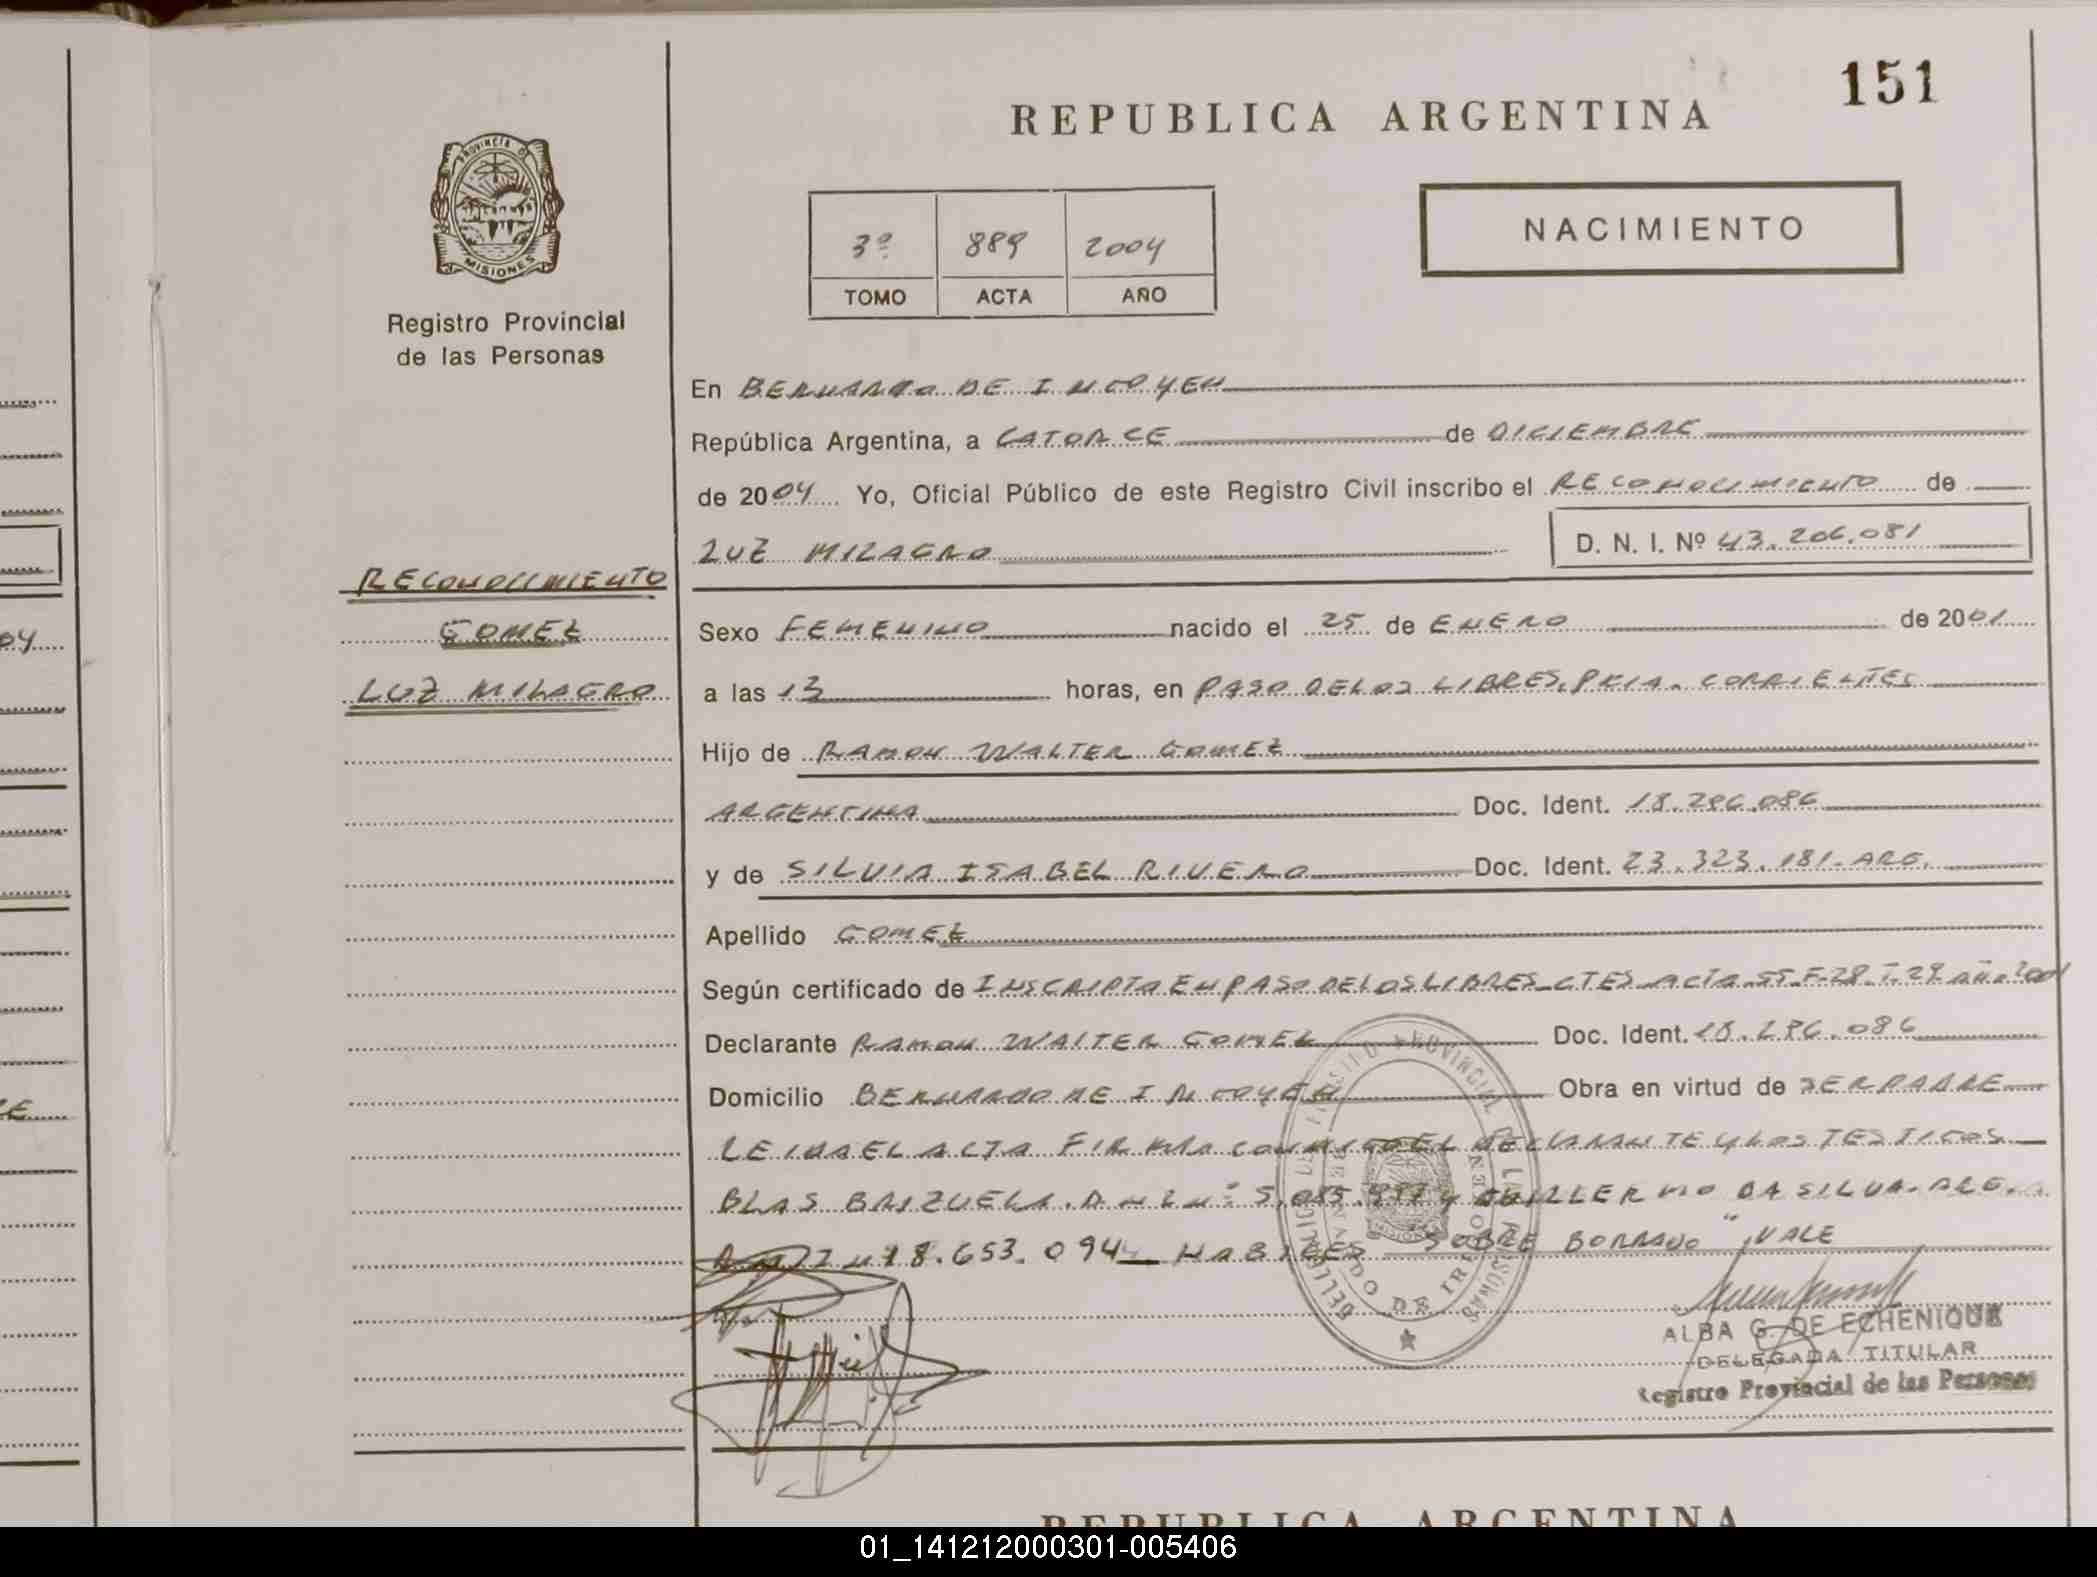 151
REPUBLICA ARGENTINA
NACIMIENTO
PROVINCIA DE
MISIONES
3º 889 2004
TOMO ACTA AÑO
Registro Provincial
de las Personas
En BERNARDO DE IRIGOYEN
República Argentina, a CATORCE de DICIEMBRE
de 2004 Yo, Oficial Público de este Registro Civil inscribo el RECONOCIMIENTO de
LUZ MILAGRO D. N. I. Nº 43.206.081
RECONOCIMIENTO
GOMEZ
LUZ MILAGRO
Sexo FEMENINO nacido el 25 de ENERO de 2001
a las 13 horas, en PASO DE LOS LIBRES, PCIA. CORRIENTES
Hijo de RAMON WALTER GOMEZ
ARGENTINA Doc. Ident. 18.296.086
y de SILVIA ISABEL RIVERO Doc. Ident. 23.323.181-ARG.
Apellido GOMEZ
Según certificado de INSCRIPTA EN PASO DE LOS LIBRES-CTES-ACTA-55-F-28-T-29-AÑO-2001
Declarante RAMON WALTER GOMEZ Doc. Ident. 18.296.086
Domicilio BERNARDO DE IRIGOYEN Obra en virtud de SER PADRE
LEIDA EL ACTA FIRMA CONMIGO EL DECLARANTE Y LOS TESTIGOS
BLAS BRIZUELA. D.N.I. Nº 5.085. Y GUILLERMO DA SILVA-ARG.
18.653.094 HABILES SOBRE BORRADO "VALE
DELEGACION REGISTRO PROVINCIAL DE LAS PERSONAS
BERNARDO DE IRIGOYEN
ALBA G. DE ECHENIQUE
DELEGADA TITULAR
Registro Provincial de las Personas
REPUBLICA ARGENTINA
01_141212000301-005406